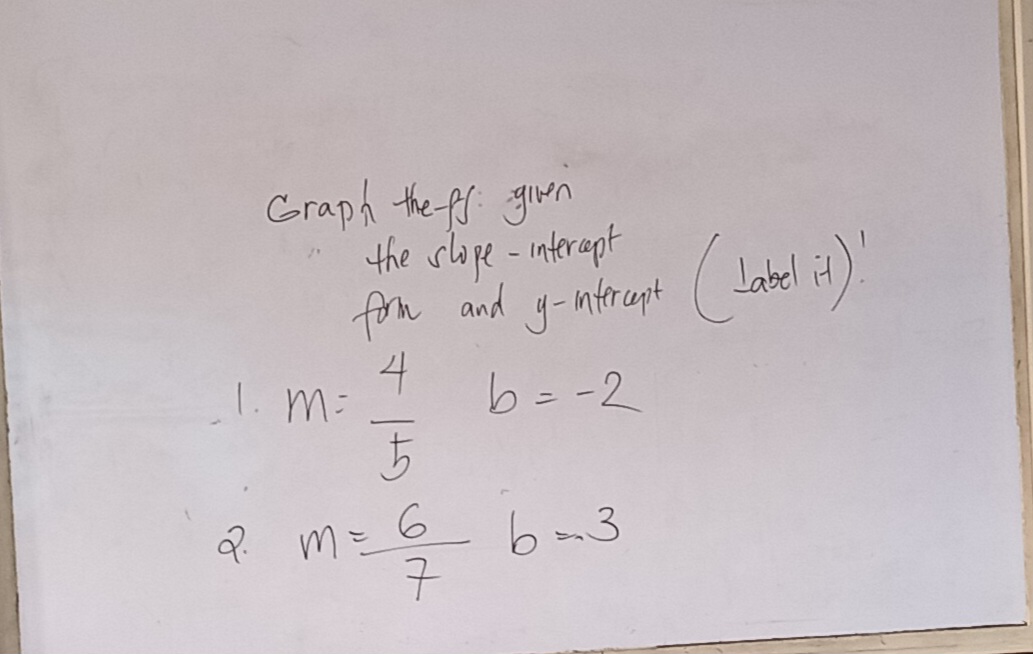 Graph the ff: given
the slope-intercept
form and y-intercept (Label it)!
1. m = 4/5 b = -2
2. m = 6/7 b = 3